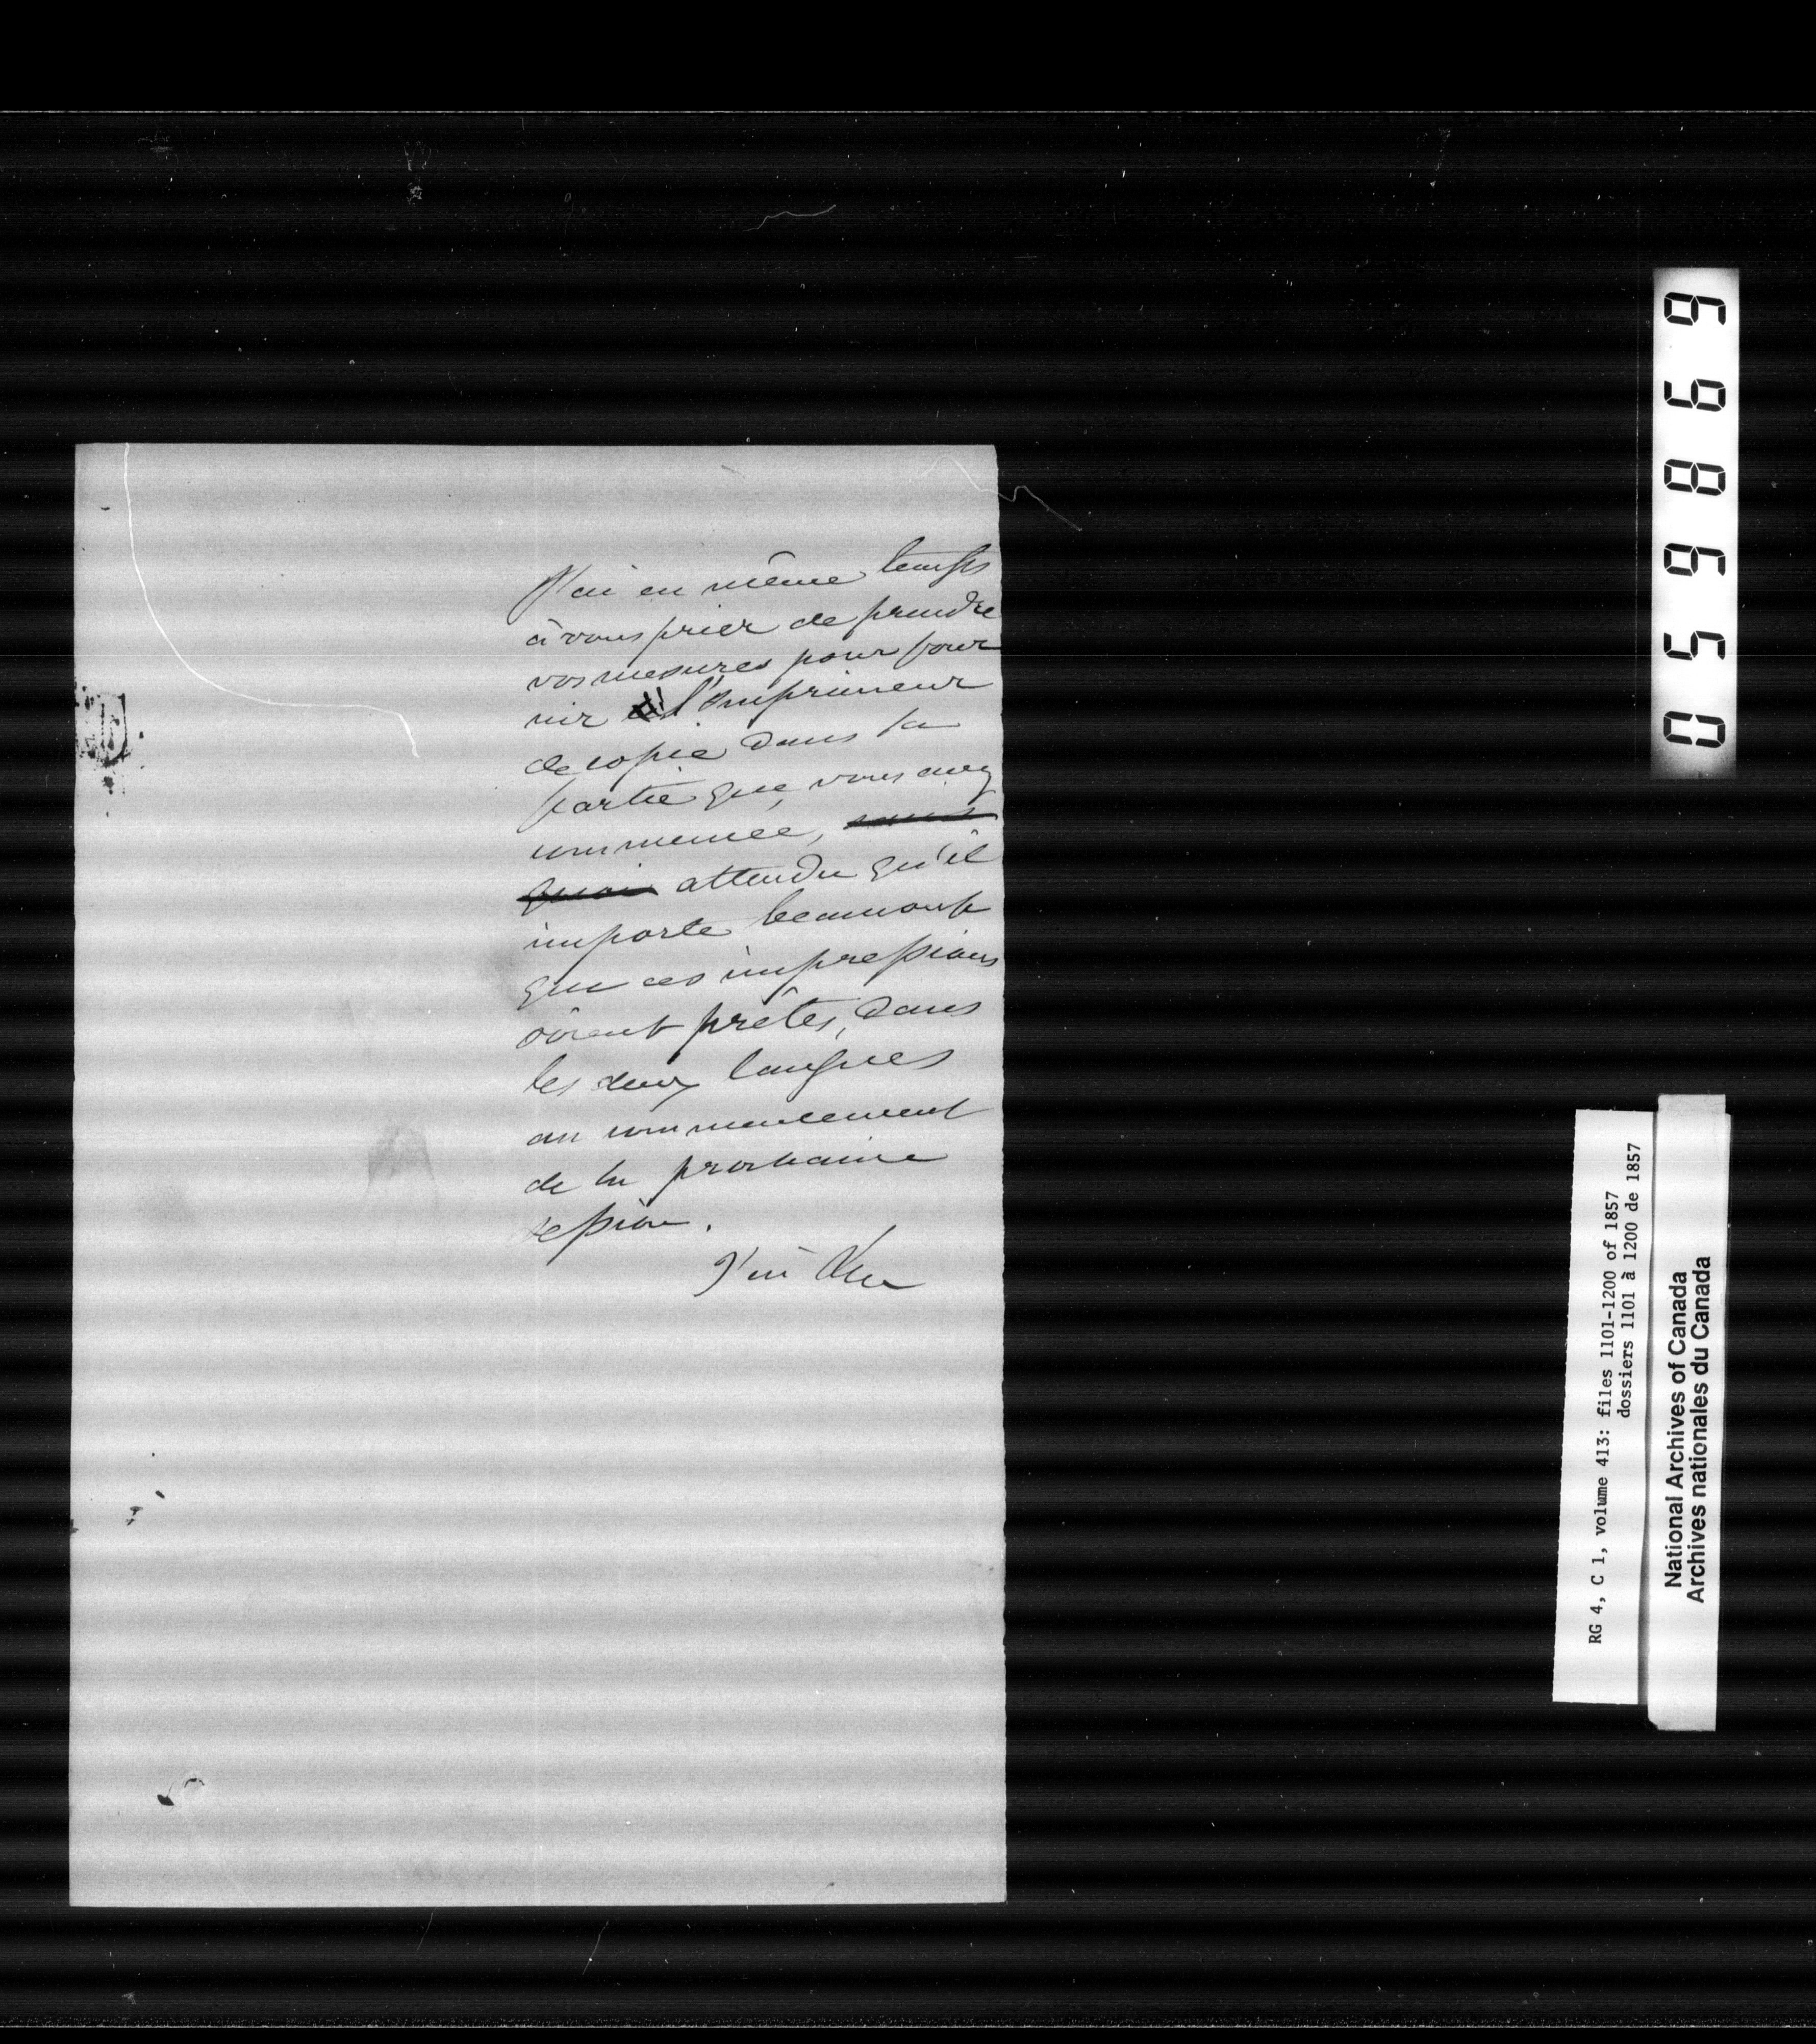 J'ai en même temps
à vous prier de prendre
vos mesures pour four
nir l'Imprimeur
de copie dans la
partie que vous avez
commencée, sans
quoi attendu qu'il
importe beaucoup
que ces impressions
soient prêtes, dans
les deux langues
au commencement
de la prochaine
session.
J'ai
059869
RG 4, C 1, volume 413: files 1101-1200 of 1857
dossiers 1101 à 1200 de 1857
National Archives of Canada
Archives nationales du Canada